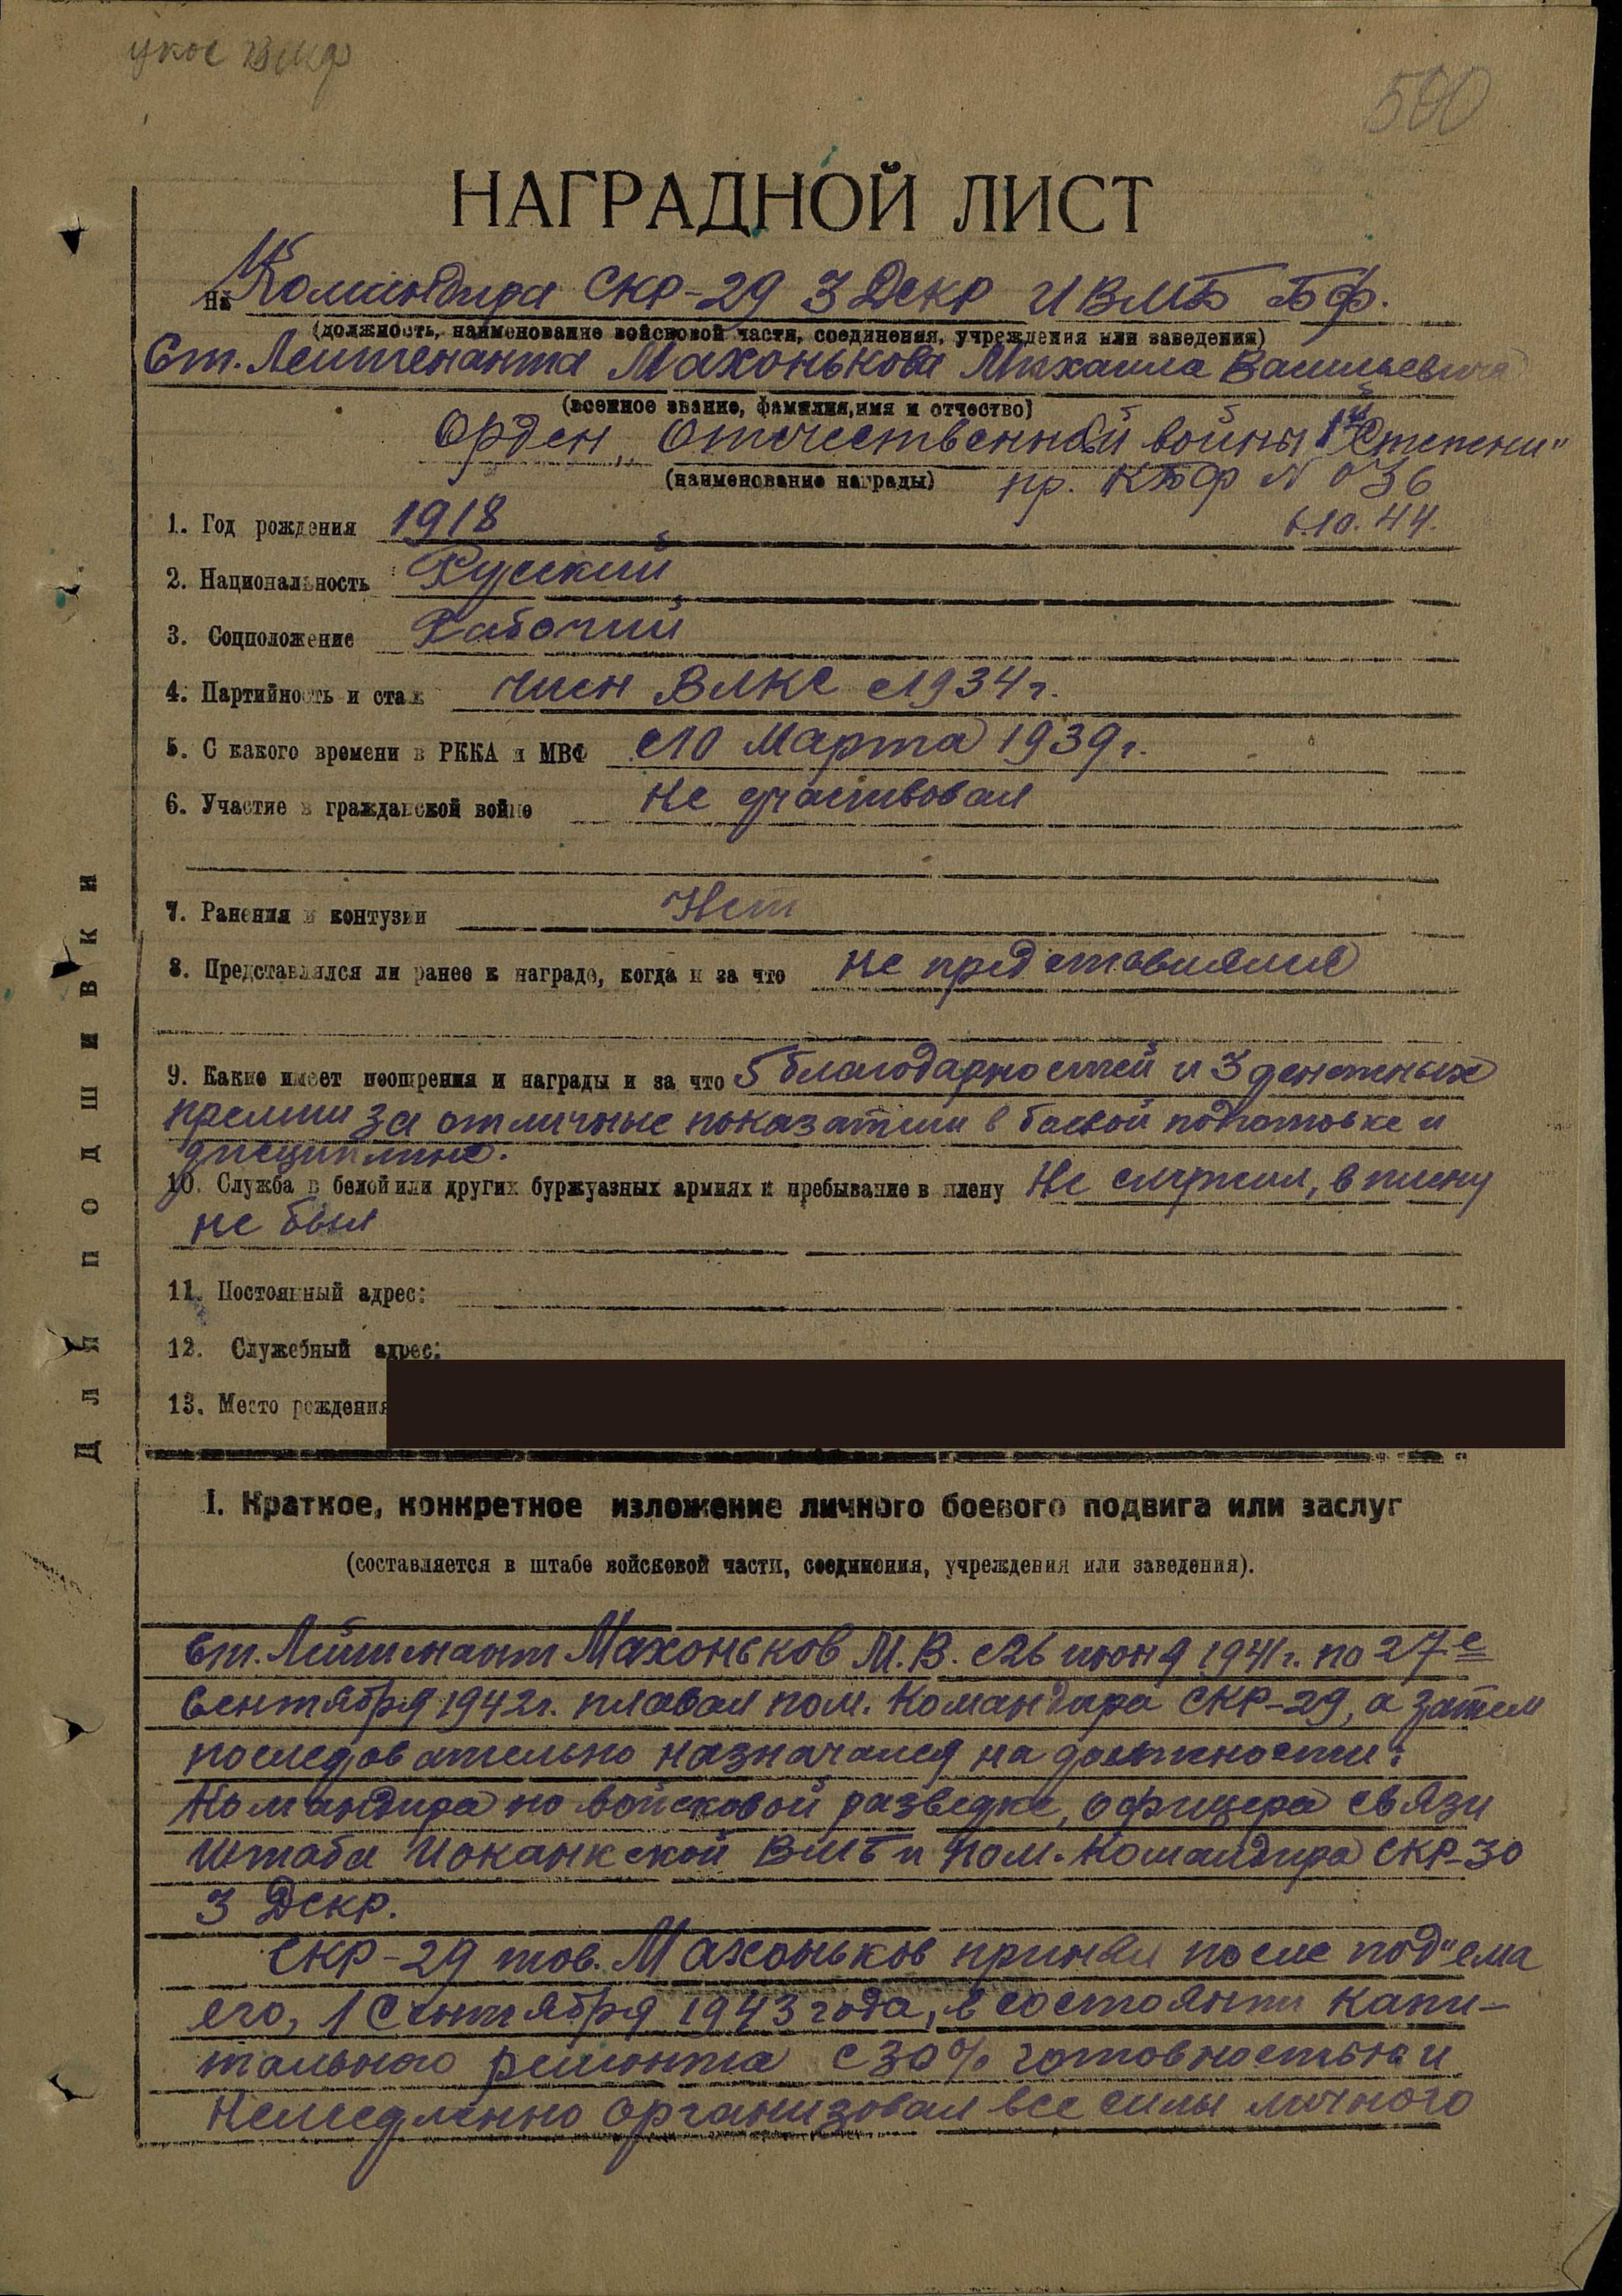 укос ВМФ
500
НАГРАДНОЙ ЛИСТ
На Командира СКР-29 3 Дскр ИВМБ БФ.
(должность, наименование войсковой части, соединения, учреждения или заведения)
Ст. Лейтенанта Махонькова Михаила Васильевича
(военное звание, фамилия, имя и отчество)
Орден „Отечественной войны 1й Степени"
(наименование награды) пр. КБФ N 036
1. Год рождения 1918 6.10.44.
2. Национальность Русский
3. Соцположение Рабочий
4. Партийность и стаж член ВЛКС с 1934 г.
5. С какого времени в РККА и МВФ с 10 Марта 1939 г.
6. Участие в гражданской войне Не участвовал
7. Ранения и контузии Нет
8. Представлялся ли ранее к награде, когда и за что Не представлялся
9. Какие имеет поощрения и награды и за что 5 благодарностей и 3 денежных
премии за отличные показатели в боевой подготовке и
дисциплине.
10. Служба в белой или других буржуазных армиях и пребывание в плену Не служил, в плену
не был
11. Постоянный адрес:
12. Служебный адрес:
13. Место рождения
Для подшивки
I. Краткое, конкретное изложение личного боевого подвига или заслуг
(составляется в штабе войсковой части, соединения, учреждения или заведения).
Ст. Лейтенант Махоньков М. В. с 26 июня 1941 г. по 27е
Сентября 1942 г. плавал пом. Командира СКР-29, а затем
последовательно назначался на должности:
Командира по войсковой разведке, офицера связи
Штаба Иоканкской ВМБ и пом. Командира СКР-30
3 Дскр.
СКР-29 тов. Махоньков принял после под"ема
его, 1 Сентября 1943 года, в состоянии капи-
тального ремонта с 30% готовностью и
Немедленно организовал все силы личного